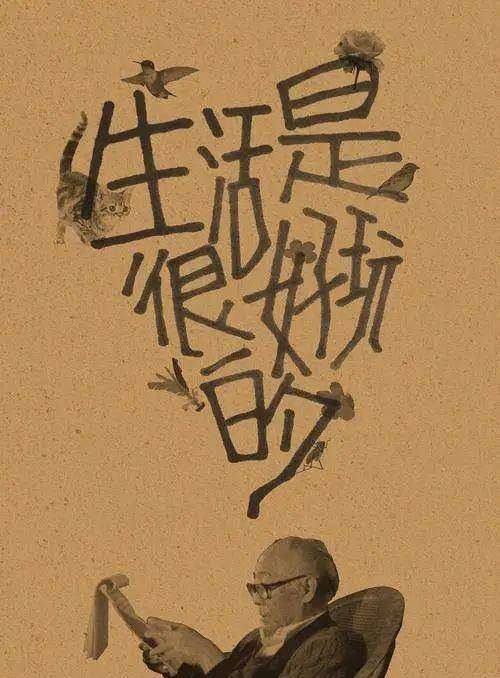 生活是
很好玩
的